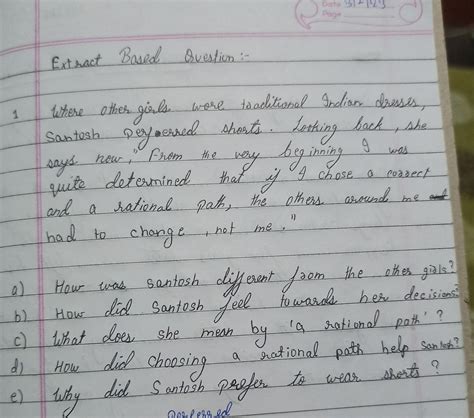 Date
Page
Extract Based Question:-
1 Where other girls wore traditional Indian dresses,
Santosh shorts. Looking back, she
says now, "From the very beginning I was
quite determined that if I chose a correct
and a rational path, the others around me
had to change, not me."
a) How was santosh different from the other girls?
b) How did Santosh feel towards her decisions?
c) What does she mean by 'a rational path'?
d) How did choosing a rational path help Santosh?
e) Why did Santosh prefer to wear shorts?
preferred